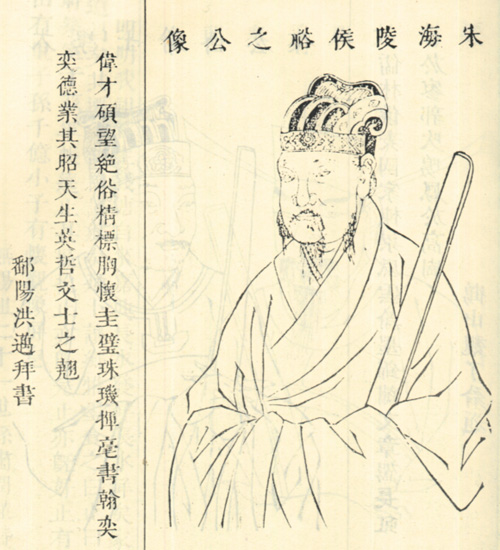 朱海陵侯裕之公像
偉才碩望絶俗精標胸懷圭璧珠璣揮毫書翰奕
奕德業其昭天生英哲文士之翹
鄱陽洪邁拜書